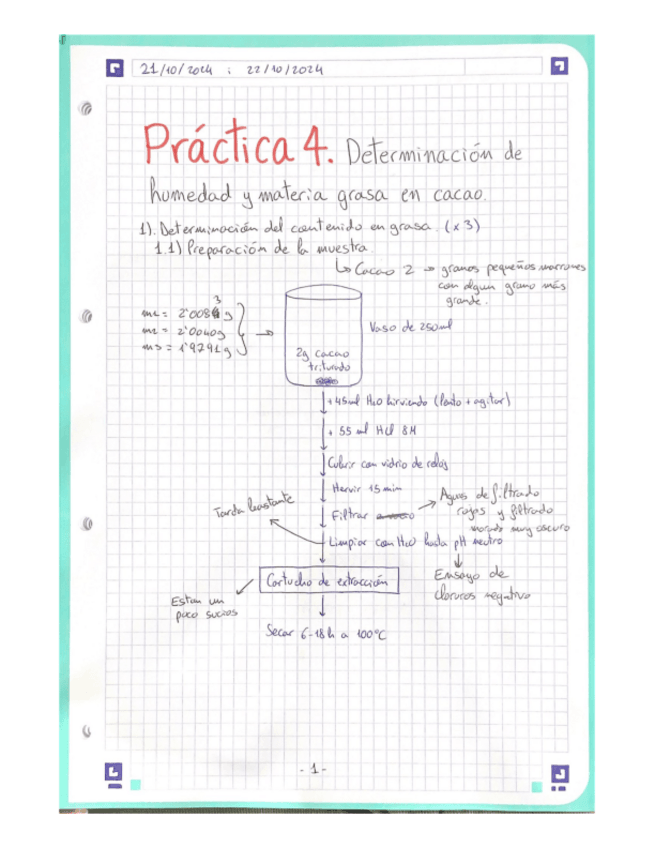 21/10/2024 ; 22/10/2024
Práctica 4. Determinación de
humedad y materia grasa en cacao.
1). Determinación del contenido en grasa. (x3)
1.1) Preparación de la muestra.
↳ Cacao 2 → granos pequeños marrones
con algun grano más
grande.
m1 = 2'0083 g
m2 = 2'0040g
m3 = 1'9791 g
Vaso de 250ml
2g cacao
triturado
+ 45ml H2O hirviendo (lento + agitar)
+ 55 ml HCl 8M
Cubrir con vidrio de reloj
Hervir 15 min
Filtrar
Aguas de filtrado
rojas y filtrado
morado muy oscuro
Tarda bastante
Limpiar con H2O hasta pH neutro
Ensayo de
cloruros negativo
Cartucho de extracción
Estan un
poco sucios
Secar 6-18h a 100°C
-1-